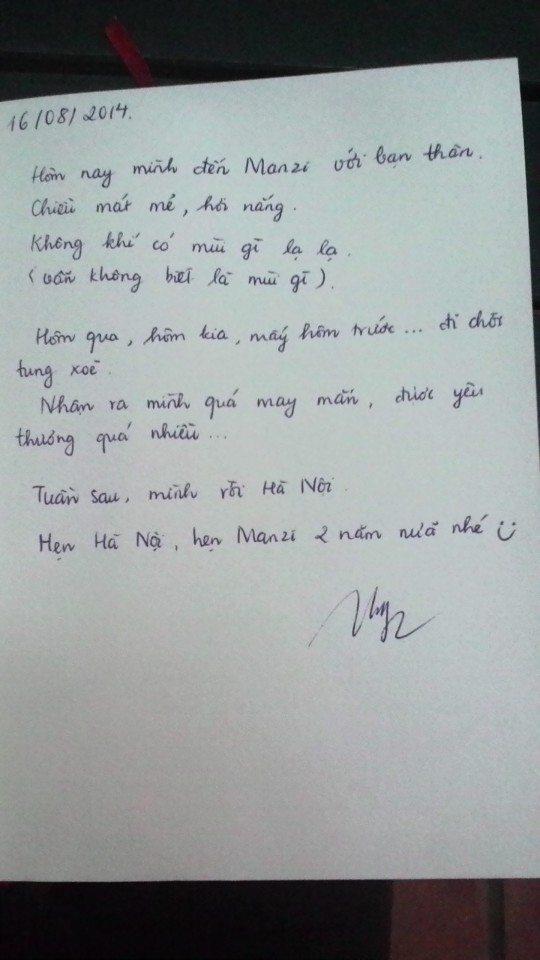 16/08/2014.
Hôm nay mình đến Manzi với bạn thân.
Chiều mát mẻ, hơi nắng.
Không khí có mùi gì lạ lạ.
(vẫn không biết là mùi gì).
Hôm qua, hôm kia, mấy hôm trước... đi chơi
tung xoè.
Nhận ra mình quá may mắn, được yêu
thương quá nhiều...
Tuần sau, mình rời Hà Nội.
Hẹn Hà Nội, hẹn Manzi 2 năm nữa nhé